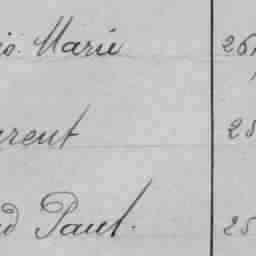 io. Marie 26
rent 25
d Paul. 25